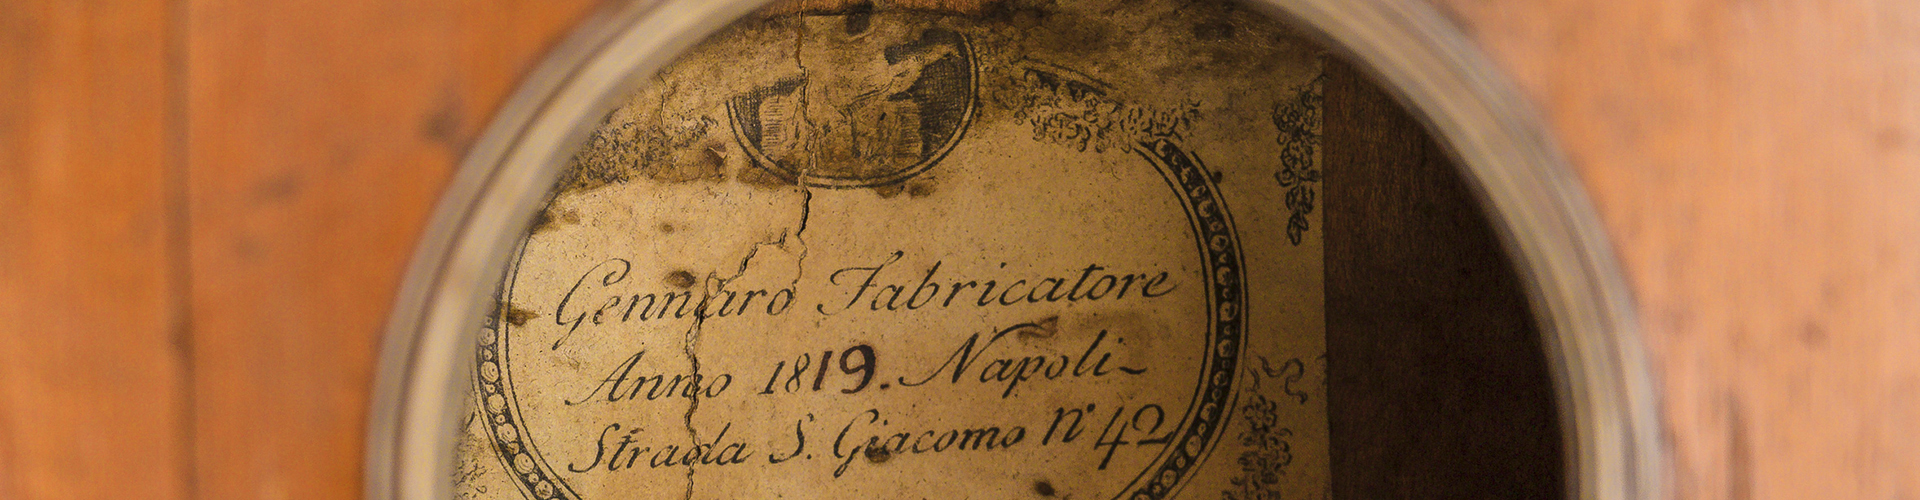 Gennaro Fabricatore
Anno 1819. Napoli
Strada S. Giacomo n° 42